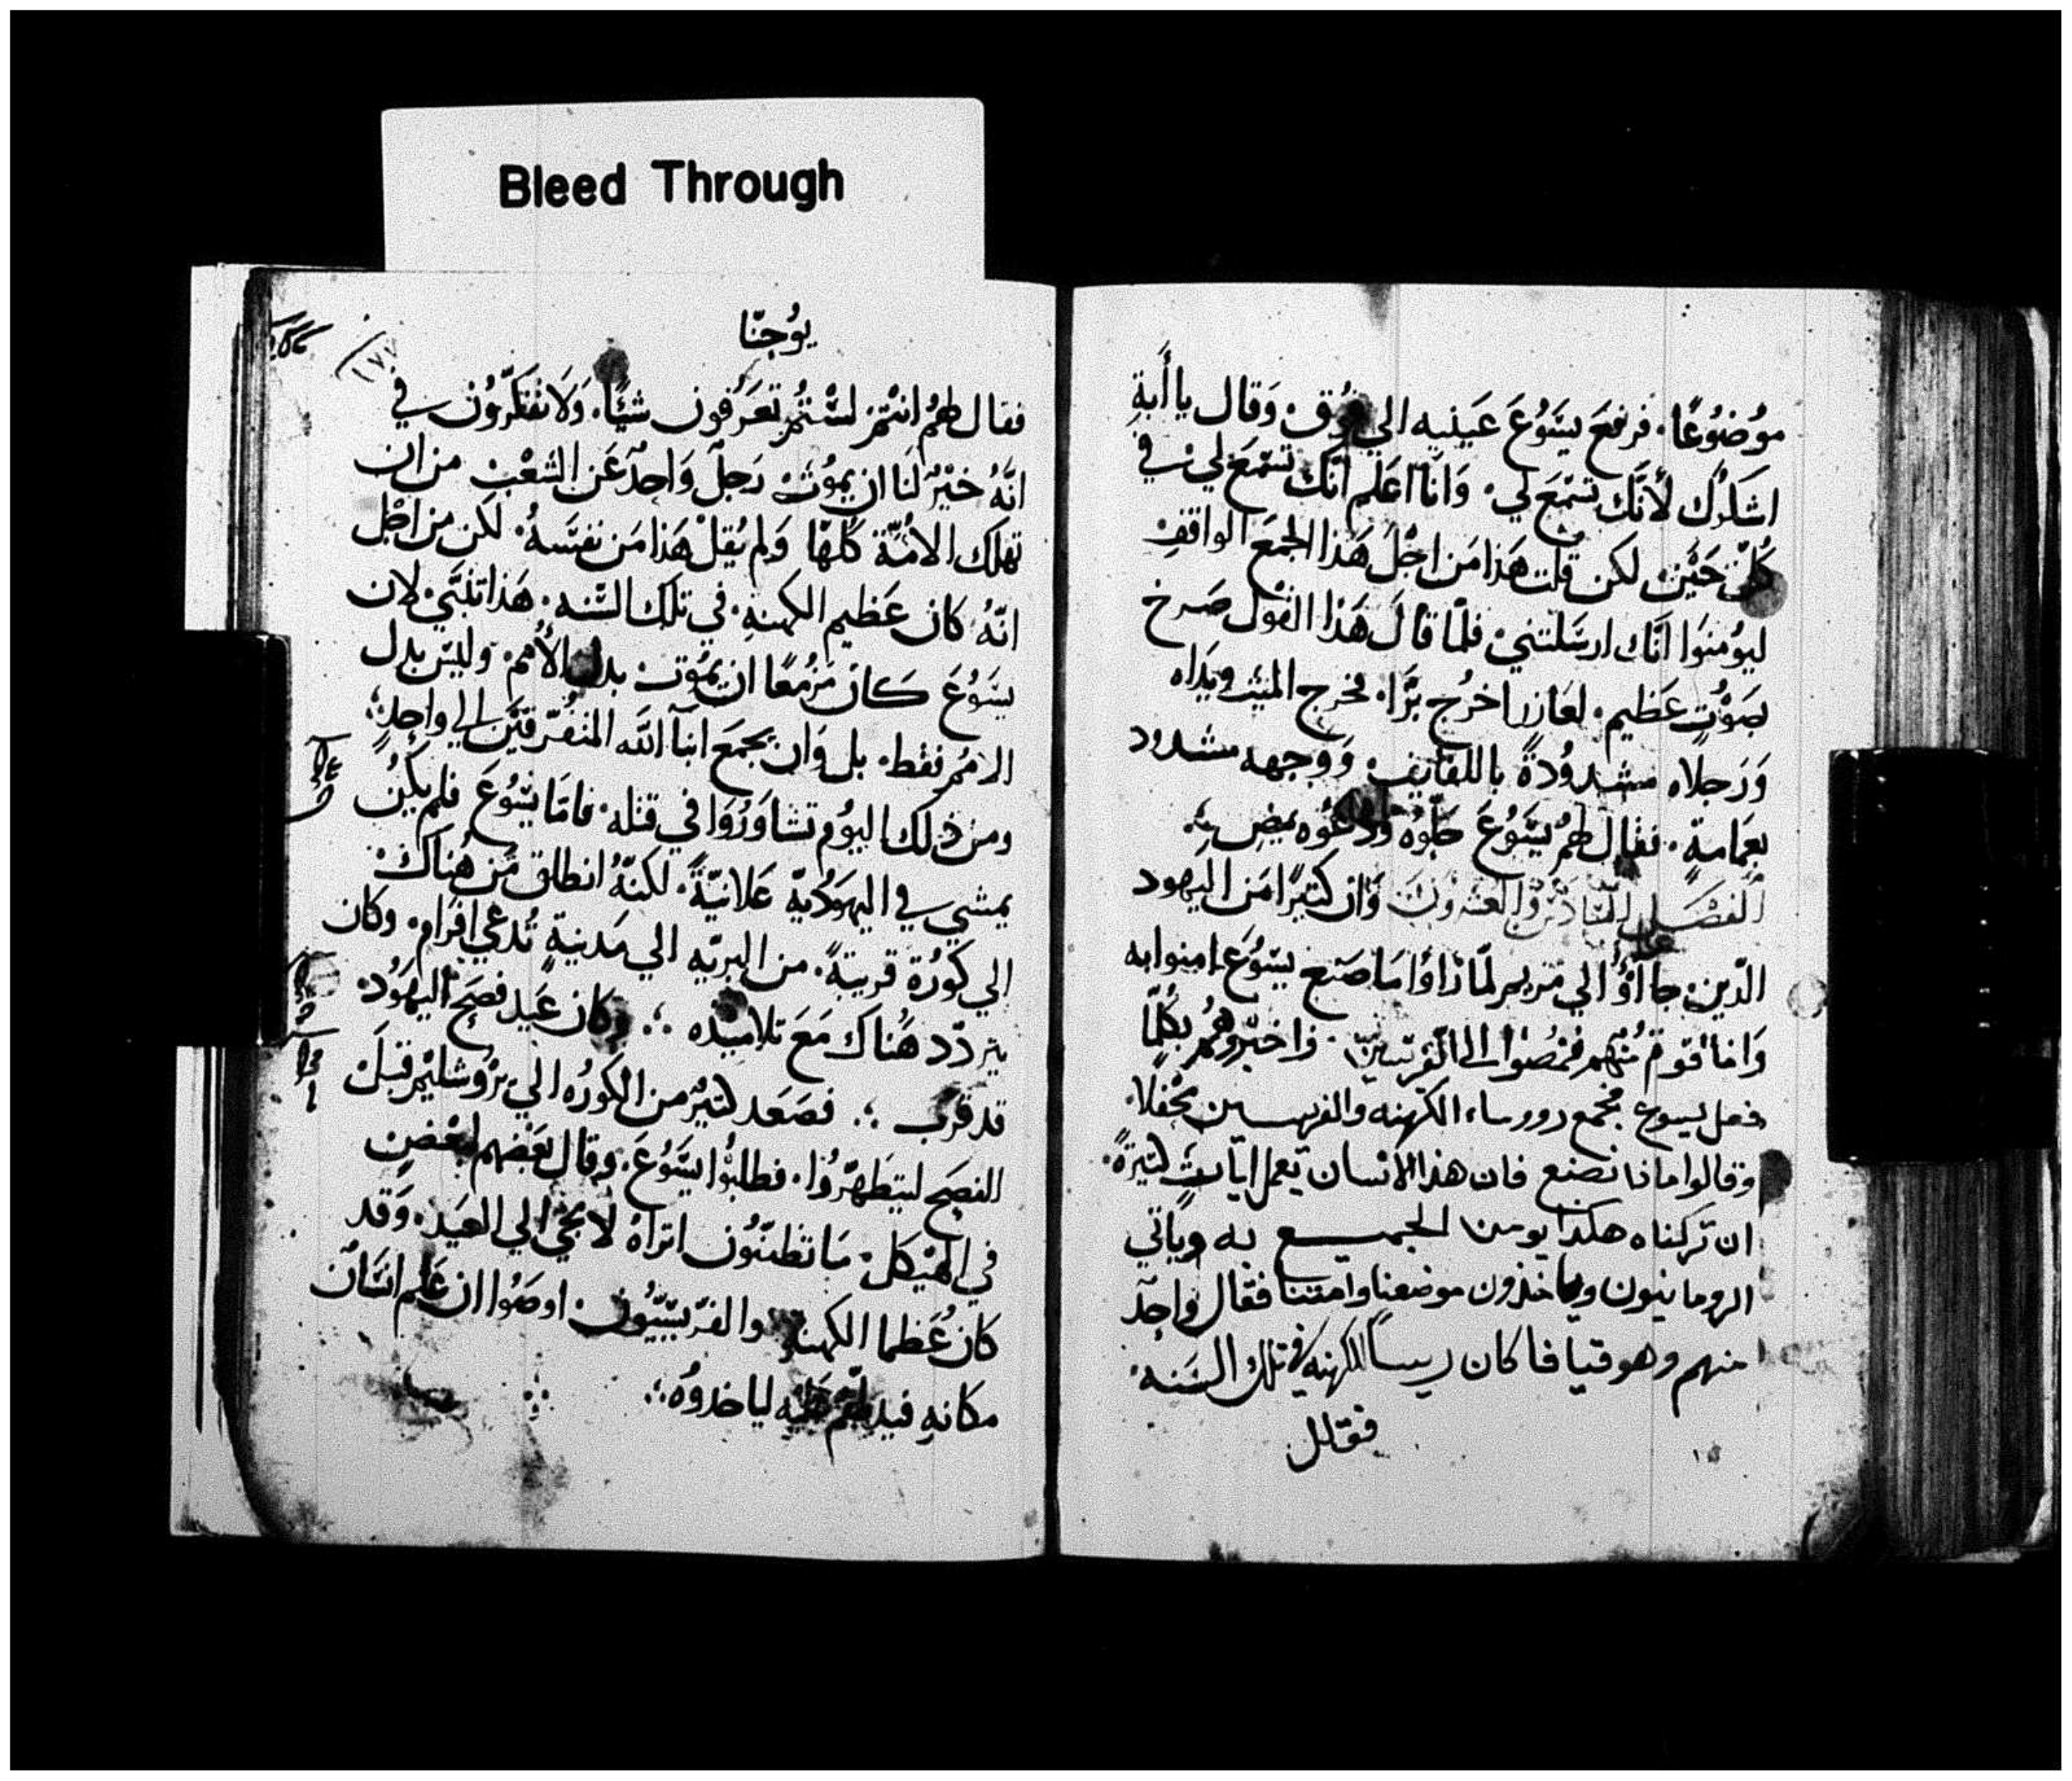 Bleed Through
موُضوُعًا. فرفعَ يسَوُعَ عَينيه الي فوُق. وَقال يا أَبةِ
اشكرُك لأنَّك تسْمَع لي. وَانَا اعَلم انَّك تسْمَعَ لي في
كُلّ حَيْن لكن قلت هَذا مَن اجْلَ هَذا الجمَع الواقفِ
ليوُمنوَا انَّك ارسَلتني. فلمّا قالَ هَذا القوْل صَرخ
بصَوْتٍ عَظيم. لعَازر اخرُج برَّا. فخرج الميّت ويدَاه
وَرَجلاه مشدودُةً باللفايف. وَوجهه مشدود
بعَمامةٍ. فقال لهمُ يسَوُعَ حلّوُه وَدعُوه يمضِ
الفصْل السَّادسُ والعشرونَ وَان كتيرًا مَن اليهود
الدّين جااؤُ الي مَريم لمّا رَاؤا مَا صَنع يسَوُعَ امنوا به
وَامَا قوم مُنهم فمضوا الي الفرّيسيّن. واخبرُوهمُ بكلّمَا
فعل يسوع فجمع روساء الكهنه والفريسين محفلا.
وقالوا ماذا نصنع فان هذا الانسان يعمل اياتٍ كتيرةً.
ان تركناه هكدا يومن الجميع به وياتي
الرومانيون وياخذون موضعنا وامتنا فقال واحد
منهم وهو قيافا كان ريسًا للكهنه في تلك السَنه
فقال
يوُحنّا
١٧٧
فقال لهمُ انتْمَ لسْتمُ تعَرفون شيًا. وَلَا تفَكّروُن في
انَّهُ خيْرٌ لنَا ان يموُت رَجلٌ وَاحدٌ عَن الشعْب من ان
تهلك الامُّة كُلهّا وَلم يُقلْ هَذا مَن نفسَهُ. لكن من اجْل
انّهُ كان عَظيم الكهنةِ. في تلك السَّنه. هَذا تنبّي لان
يسَوُعَ كَان مَزمُعًا ان يموُت بدل الأُمم. وليسَ بدل
الامُم فقط. بل وَان يجمَعَ ابنآ اللّه المتفُرّقيَن الي واحدٍ.
ومن ذلك اليوُم تشاوَرُوَا في قتله. فامَا يسَوُعَ فلم يكنُ
يمشي في اليهوُديّة عَلانيّةً. لكنهُّ انطلق مَن هُناكَ
الي كوُرُة قريبةً. من البريّه الي مَدينةٍ تُدعَي افرَام. وكان
يتردّد هنُاكَ مَعَ تلاميده. وَكان عَيد فصَحَ اليهوُد
قد قرب. فصَعَد كتيرُ من الكورُه الي يرَوُشليْم قبَلَ
الفصَح ليتطَهرّوُا. فطلبوُا يسَّوُعَ. وقال بعَضهم لبعْضٍ
في الهيْكل. مَا تظنّوُن اتراهُ لا يجي الي العَيد. وَقد
كان عُظما الكهنة والفرّيسيّوُن. اوصَوُا ان عَلم انسَانٌ
مكانهِ فيدلهّم عَليْه لياخدوُه